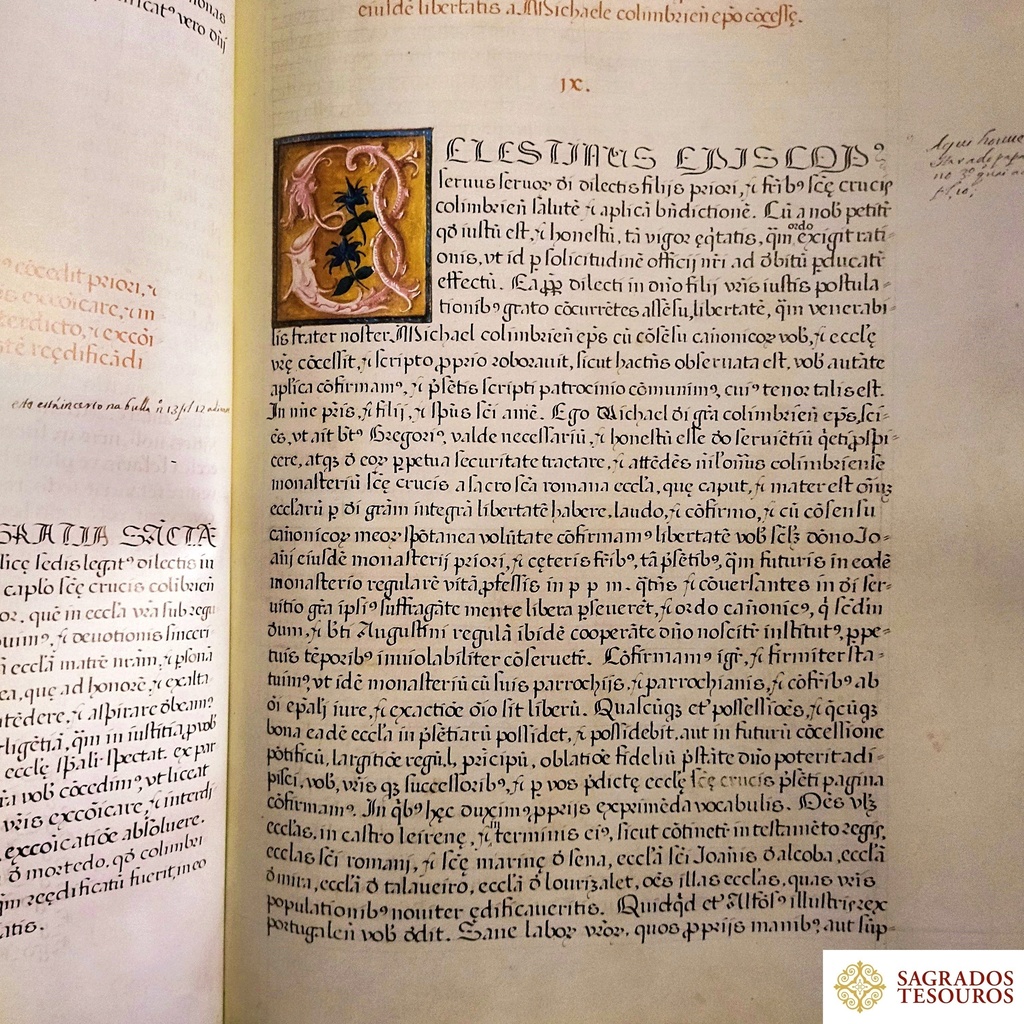 eiusdē libertatis a Michaele colimbrien̄ ep̄o cōcessę.
IX.
ELESTINUS EPISCOP⁹
seruus seruoꝝ dī dilectis filijs priori, ⁊ fr̄ib⁹ sc̄ę crucis
colimbrien̄ salutē ⁊ ap̄licā bn̄dictionē. Cū a nob̄ petitr̄
qd̄ iustū est, ⁊ honestū, tā vigor ęq̄tatis, q̄m ordo exigit rati-
onis, vt id ꝑ solicitudinē officij nr̄i ad d̄bitū ꝑducatr̄
effectū. Eaꝓꝑ dilecti in dn̄o filij vr̄is iustis postula-
tionib⁹ grato cōcurrētes assēsu, libertatē, q̄m venerabi-
lis frater noster Michael colimbrien̄ ep̄s cū cōsēsu cānonicoꝝ vob̄, ⁊ ecclę
vr̄ę cōcessit, ⁊ scripto ꝓprio roborauit, sicut hactn̄s obseruata est, vob̄ autāte
ap̄lica cōfirmam⁹, ⁊ p̄sētis scripti patrocinio cōmunim⁹, cui⁹ tenor talis est.
In nn̄e pr̄is, ⁊ filij, ⁊ sp̄us sc̄i amē. Ego Michael dī gr̄a colimbrien̄ ep̄s, sci-
ēs, vt ait bt̄⁹ Gregori⁹, valde necessariū, ⁊ honestū esse do seruiētiū q̄eti ꝓspi-
cere, atqꝫ d̄ eoꝝ ꝑpetua securitate tractare, ⁊ attēdēs
monasteriū sc̄ę crucis a sacrosc̄a romana eccl̄a, quę caput, ⁊ mater est oīuꝫ
ecclārū ꝑ dī grām integrā libertatē habere, laudo, ⁊ cōfirmo, ⁊ cū cōsensu
cānonicoꝝ meoꝝ spōtanea volūtate cōfirmam⁹ libertatē vob̄ sclꝫ dōno Jo-
ān̄j eiusdē monasterij priori, ⁊ cęteris fr̄ib⁹, tā p̄sētib⁹, q̄m futuris in eodē
monasterio regularē vitā ꝓfessis in p p m. q̄tn̄s ⁊ cōuersantes in dī ser-
uitio gr̄a ipsi⁹ suffragāte mente libera ꝑseuerēt, ⁊ ordo cānonic⁹, q̄ sc̄din
dūm, ⁊ bt̄i Augustini regulā ibidē cooperāte dn̄o noscitr̄ institut⁹, ꝑpe-
tuis tēporib⁹ inuiolabiliter cōseruetr̄. Cōfirmam⁹ igr̄, ⁊ firmiter sta-
tuim⁹, vt idē monasteriū cū suis parrochijs, ⁊ parrochianis, ⁊ cōfr̄ib⁹ ab
oī ep̄alj iure, ⁊ exactiōe oīo sit liberū. Quascūqꝫ et⁹ possessiōēs, ⁊ q̄cūqꝫ
bona eadē eccl̄a in p̄sētiarū possidet, ⁊ possidebit, aut in futurū cōcessione
pōtificū, largitiōe regū, l, pr̄icipū, oblatiōe fideliū p̄stāte dn̄o poterit adi-
pisci, vob̄, vr̄is qꝫ successorib⁹, ⁊ ꝑ vos p̄dictę ecclę sc̄ę crucis p̄sēti pagina
cōfirmam⁹. In q̄b⁹ hęc duxim⁹ ꝓprijs exprimēda vocabulis. Oēs vlꝫ
ecclas, in castro leirenę, ⁊ in terminis ei⁹, sicut cōtinetr̄ in testamēto regis,
ecclas sc̄i romanj, ⁊ sc̄ę marinę d̄ sena, ecclā sc̄i Joānis d̄ alcoba, ecclā
d̄ mira, ecclā d̄ talaueiro, ecclā d̄ lourizalet, oēs illas ecclas, quas vr̄is
populationib⁹ nouiter ędificaueritis. Quidqd̄ et⁹ Alfōs⁹ illustris rex
portugalen̄ vob̄ d̄dit. Sane laboꝝ vr̄oꝝ, quos ꝓprijs manib⁹, aut sūp-
cōcedit priori, ⁊
excōicare, ⁊ in-
terdicto, ⁊ excōi-
reędificādi
GRATIA SĀCTÆ
licę sedis legat⁹ dilectis in
caplo sc̄ę crucis colibrien̄
or, quē in eccl̄a vr̄a sub regu
uim⁹, ⁊ deuotionis sinceri-
ecclā matrē nrām, ⁊ ꝑsonā
ea, quę ad honorē, ⁊ exalta-
tēdere, ⁊ aspirare d̄beam⁹
ligētiā, q̄m in iustitia, ꝓ vob̄
ecclę sp̄ali spectat. ex par
vob̄ cōcedim⁹, vt liceat
vr̄is excōicare, ⁊ interdi
excōicatiōe absoluere.
d̄ mortedo, qd̄ colimbri
reędificatū fuerit, in eo
atis.
SAGRADOS
TESOUROS